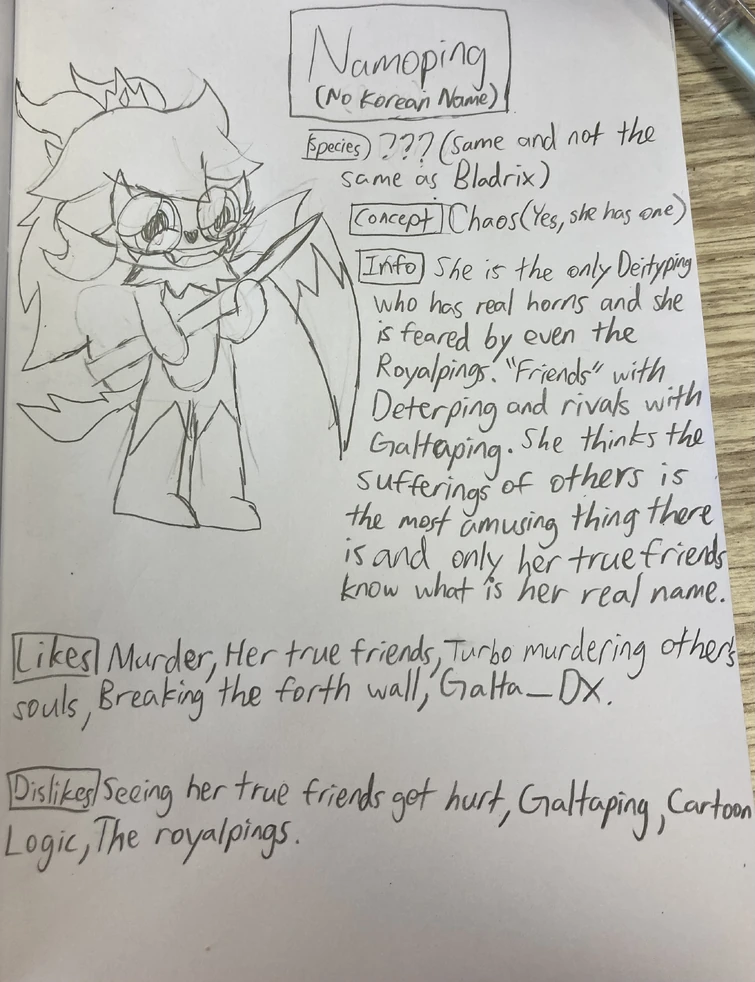 Namoping
(No Korean Name)
Species) ??? (same and not the
same as Bladrix)
Concept Chaos (Yes, she has one)
Info She is the only Deityping
who has real horns and she
is feared by even the
Royalpings. "Friends" with
Deterping and rivals with
Galtaping. She thinks the
sufferings of others is
the most amusing thing there
is and only her true friends
know what is her real name.
Likes Murder, Her true friends, Turbo murdering other's
souls, Breaking the forth wall, Galta_DX.
Dislikes Seeing her true friends get hurt, Galtaping, Cartoon
Logic, The royalpings.